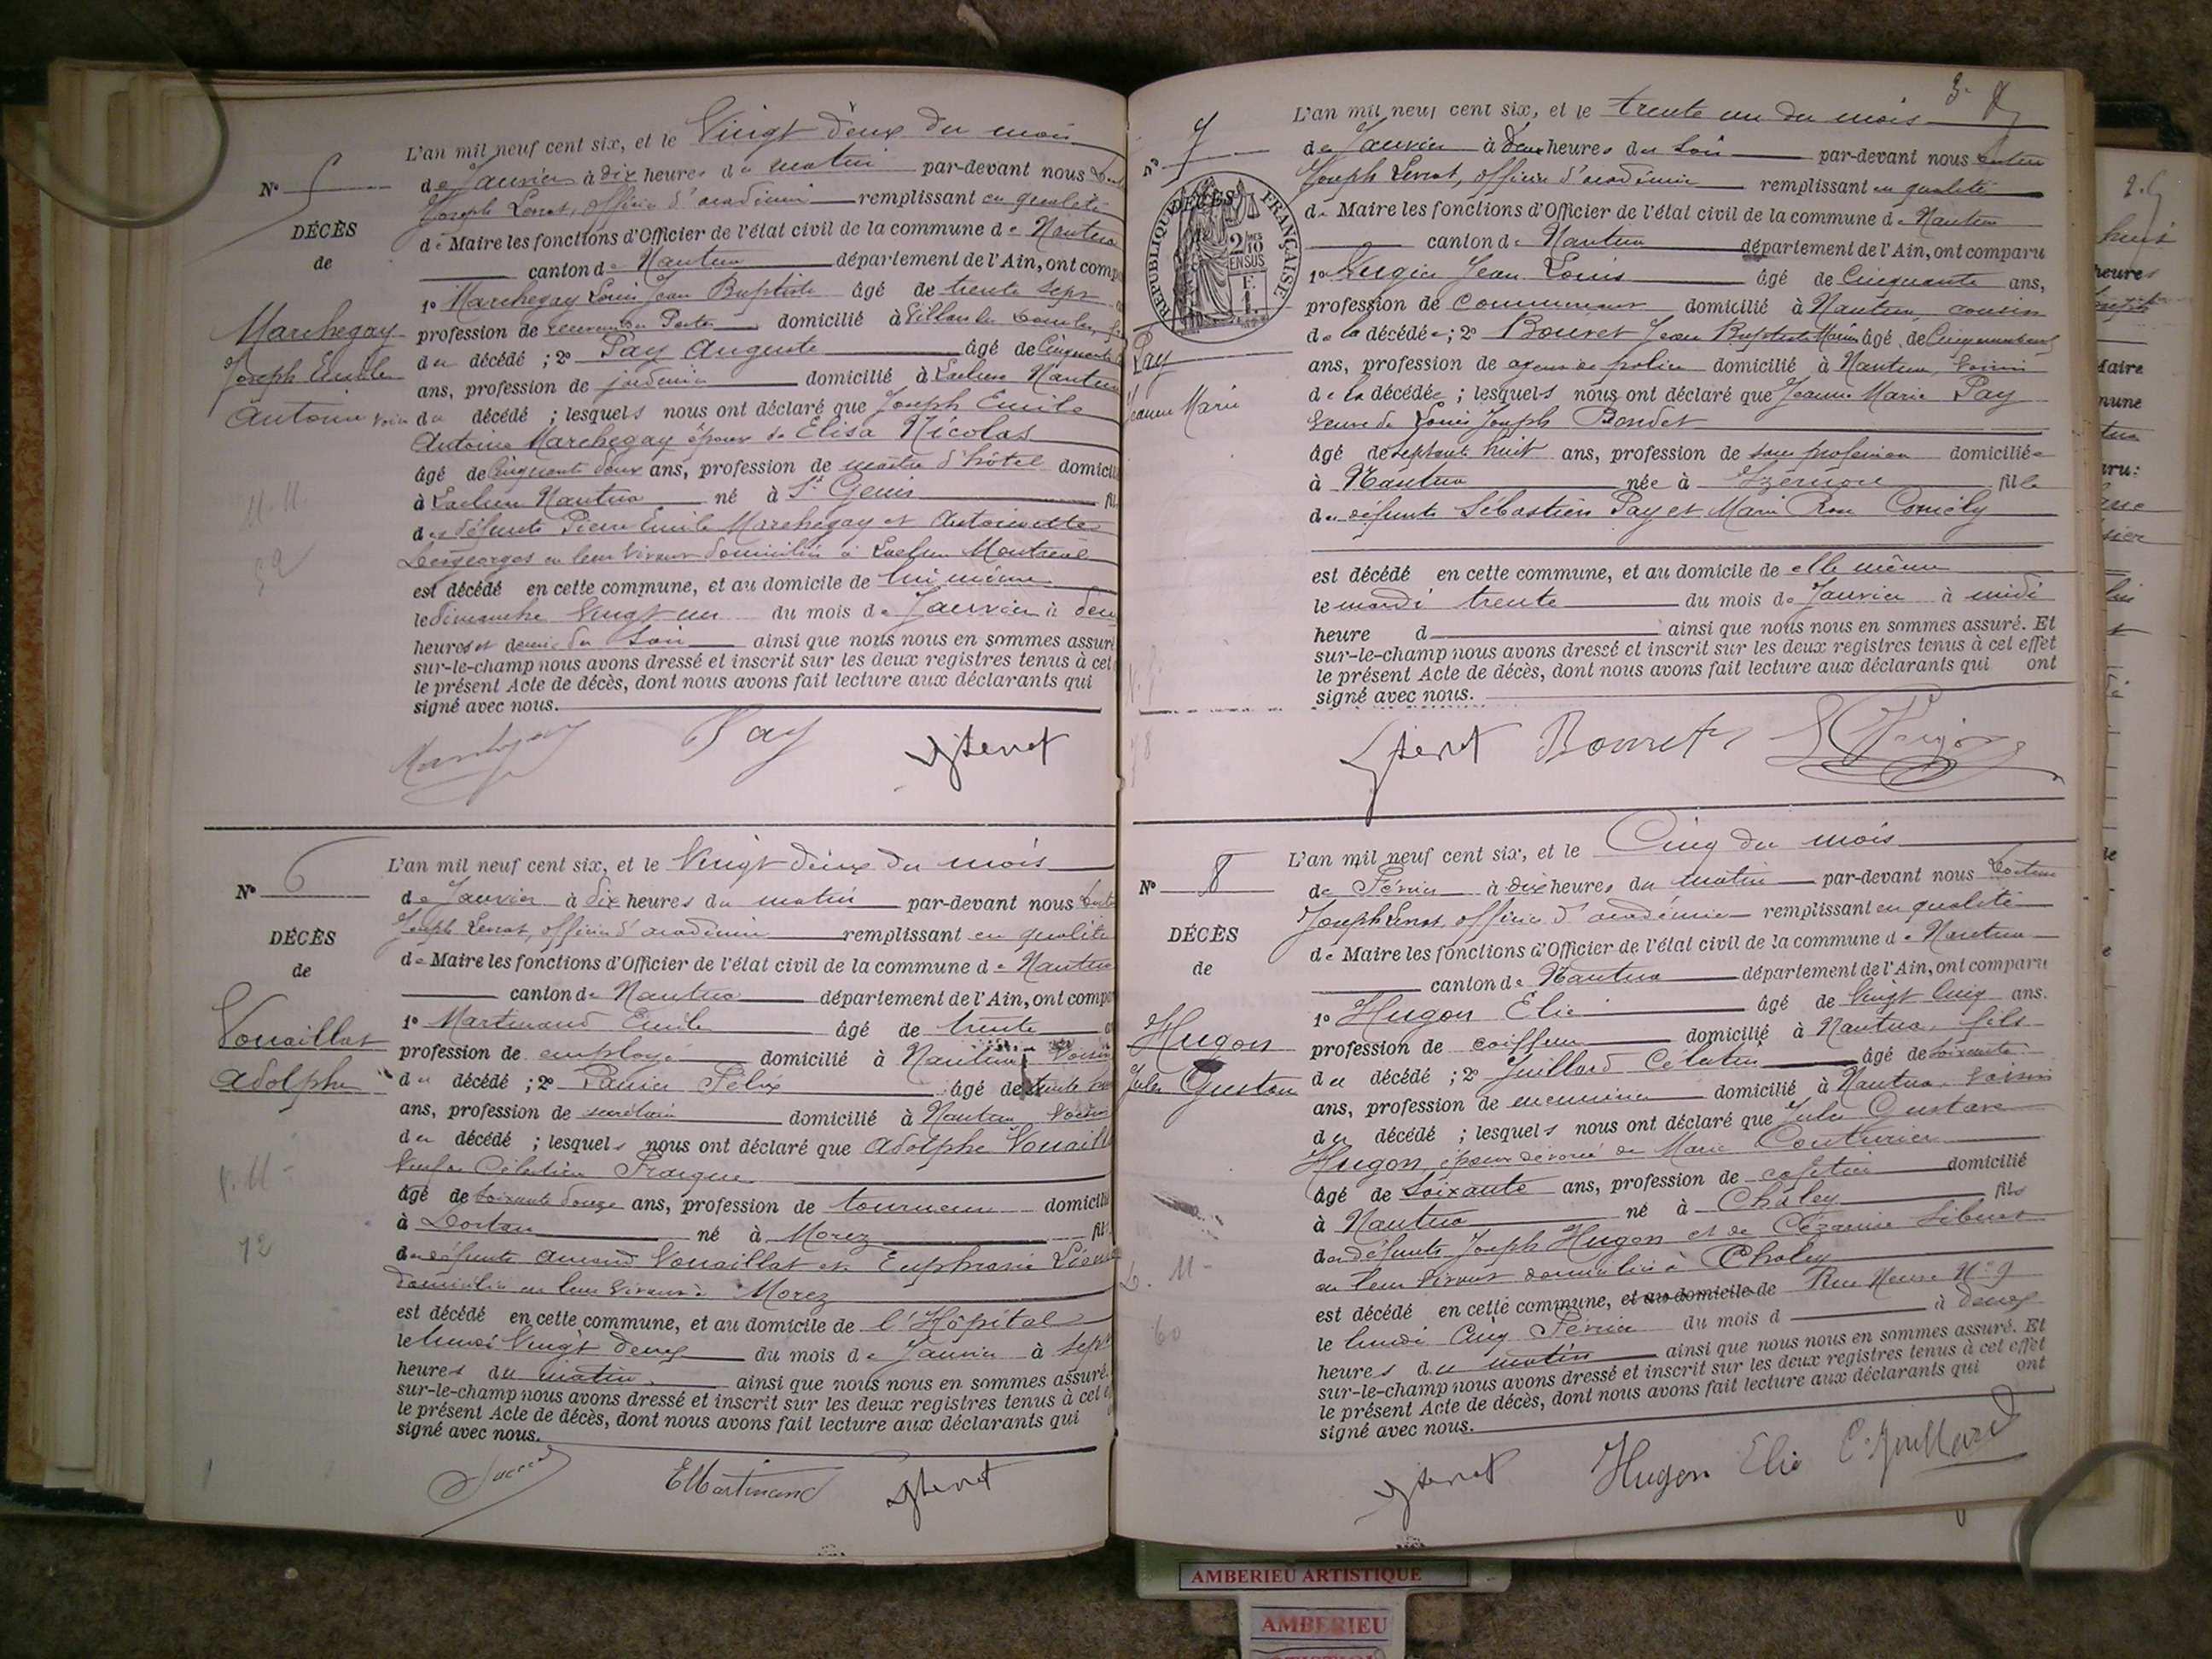 L'an mil neuf cent six, et le Vingt deux du mois
N° 5
de Janvier à dix heures du matin par-devant nous
Joseph officier d'académie remplissant en qualité
DÉCÈS
de Maire les fonctions d'Officier de l'état civil de la commune de Nantua
de
canton de Nantua département de l'Ain, ont comp
1° Marchegay Louis Jean Baptiste âgé de trente sept
Marchegay
Joseph Emile
Antoine
profession de domicilié à
du décédé ; 2° Pay Auguste âgé de Cinquante
ans, profession de jardinier domicilié à Nantua
voisin du décédé ; lesquels nous ont déclaré que Joseph Emile
Antoine Marchegay époux de Elisa Nicolas
âgé de Cinquante deux ans, profession de maître d'hôtel domicil
à Nantua né à St Genis fil
des défunts Pierre Emile Marchegay et Antoinette
Desgeorges en leur vivant domiciliés à
est décédé en cette commune, et au domicile de lui même
le dimanche vingt un du mois de Janvier à deu
heures et demie du soir ainsi que nous nous en sommes assuré
sur-le-champ nous avons dressé et inscrit sur les deux registres tenus à cet
le présent Acte de décès, dont nous avons fait lecture aux déclarants qui
signé avec nous.
Pay
L'an mil neuf cent six, et le Vingt deux du mois
N° 6
de Janvier à dix heures du matin par-devant nous
Joseph officier d'académie remplissant en qualité
DÉCÈS
de Maire les fonctions d'Officier de l'état civil de la commune de Nantua
de
canton de Nantua département de l'Ain, ont compa
1° Martinand Emile âgé de trente
Vouaillat
Adolphe
profession de employé domicilié à Nantua voisin
du décédé ; 2° Panier Félix âgé de trente
ans, profession de secrétaire domicilié à Nantua voisin
du décédé ; lesquels nous ont déclaré que Adolphe Vouaill
veuf de Célestine
âgé de soixante douze ans, profession de tourneur domicilié
à Dortan né à Morez fil
des défunts Amand Vouaillat et Euphrasie
domiciliés en leur vivant à Morez
72
est décédé en cette commune, et au domicile de l'Hôpital
le lundi vingt deux du mois de Janvier à sept
heures du matin ainsi que nous nous en sommes assuré.
sur-le-champ nous avons dressé et inscrit sur les deux registres tenus à cet e
le présent Acte de décès, dont nous avons fait lecture aux déclarants qui
signé avec nous.
EMartinand
L'an mil neuf cent six, et le trente un du mois
N° 7
de Janvier à deux heures du soir par-devant nous
Joseph officier d'académie remplissant en qualité
RÉPUBLIQUE FRANÇAISE
DÉCÈS
2/10 EN SUS
de Maire les fonctions d'Officier de l'état civil de la commune de Nantua
canton de Nantua département de l'Ain, ont comparu
1° Jean Louis âgé de Cinquante ans,
profession de domicilié à Nantua, cousin
Pay
Jeanne Marie
de la décédée ; 2° Bouvet Jean Baptiste Marie âgé de
ans, profession de agent de police domicilié à Nantua, voisin
de la décédée ; lesquels nous ont déclaré que Jeanne Marie Pay
veuve de Louis Joseph Bondet
âgé de septante huit ans, profession de sans profession domiciliée
à Nantua née à Izernore fille
des défunts Sébastien Pay et Marie Rose
est décédé en cette commune, et au domicile de elle même
le mardi trente du mois de Janvier à midi
heure d ainsi que nous nous en sommes assuré. Et
sur-le-champ nous avons dressé et inscrit sur les deux registres tenus à cet effet
le présent Acte de décès, dont nous avons fait lecture aux déclarants qui ont
signé avec nous.
Bouvet
L'an mil neuf cent six, et le Cinq du mois
N° 8
de Février à dix heures du matin par-devant nous
Joseph officier d'académie remplissant en qualité
DÉCÈS
de Maire les fonctions d'Officier de l'état civil de la commune de Nantua
de
canton de Nantua département de l'Ain, ont comparu
1° Hugon Elie âgé de vingt cinq ans.
Hugon
Jules Gustave
profession de coiffeur domicilié à Nantua, fils
du décédé ; 2° Juillard Célestin âgé de soixante
ans, profession de domicilié à Nantua, voisin
du décédé ; lesquels nous ont déclaré que Jules Gustave
Hugon, époux divorcé de Marie Couturier
âgé de soixante ans, profession de cafetier domicilié
à Nantua né à Chaley fils
des défunts Joseph Hugon et de
en leur vivant domiciliés à Chaley
60
est décédé en cette commune, et au domicile de Rue Neuve N° 9
le lundi cinq Février du mois d à deux
heures du matin ainsi que nous nous en sommes assuré. Et
sur-le-champ nous avons dressé et inscrit sur les deux registres tenus à cet effet
le présent Acte de décès, dont nous avons fait lecture aux déclarants qui ont
signé avec nous.
Hugon Elie C. Juillard
AMBERIEU ARTISTIQUE
AMBERIEU